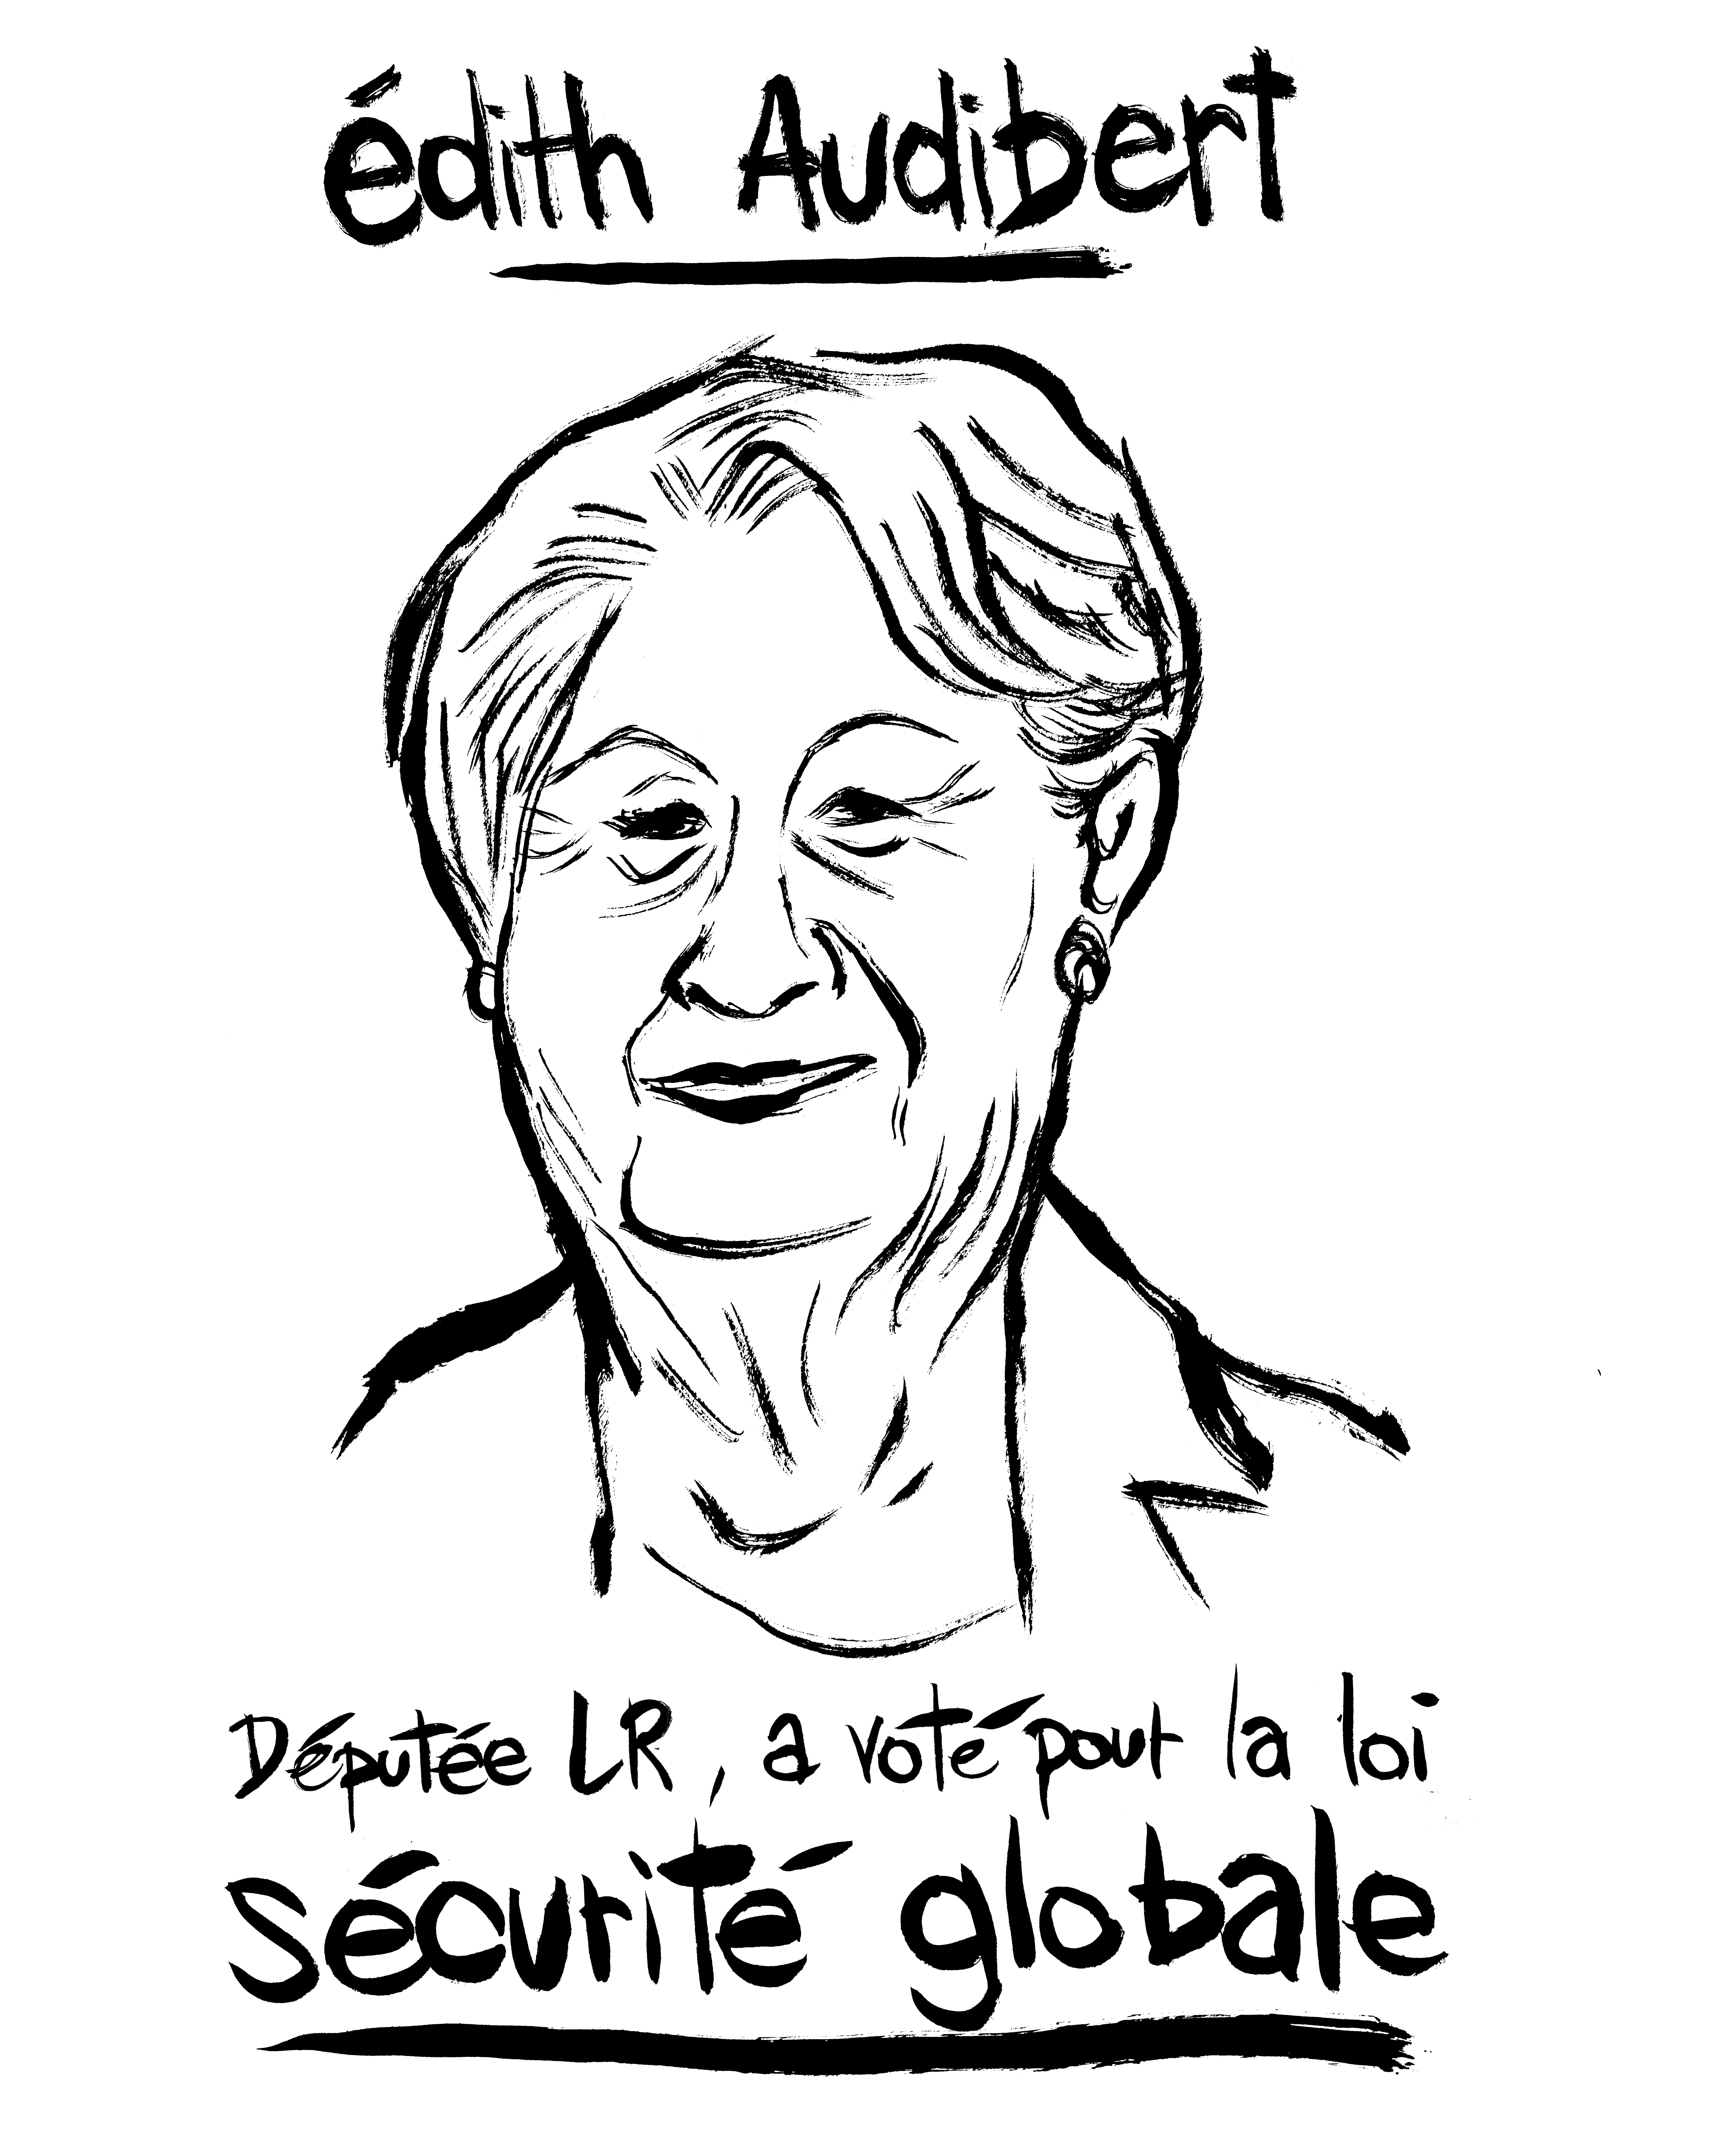 édith Audibert
Députée LR, a voté pour la loi
sécurité globale